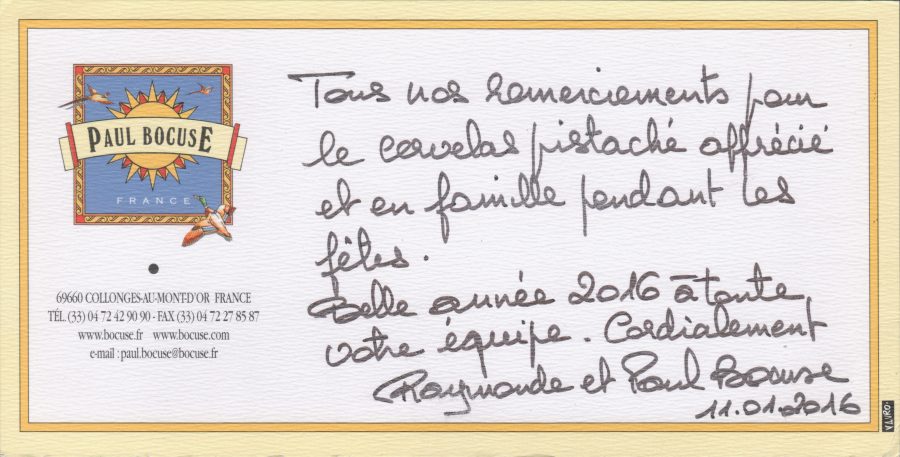 PAUL BOCUSE
FRANCE
69660 COLLONGES-AU-MONT-D'OR FRANCE
TÉL. (33) 04 72 42 90 90 - FAX (33) 04 72 27 85 87
www.bocuse.fr www.bocuse.com
e-mail : paul.bocuse@bocuse.fr
Tous nos remerciements pour
le cervelas pistaché apprécié
et en famille pendant les
fêtes.
Belle année 2016 à toute
votre équipe. Cordialement
Raymonde et Paul Bocuse
11.01.2016
VAVRO